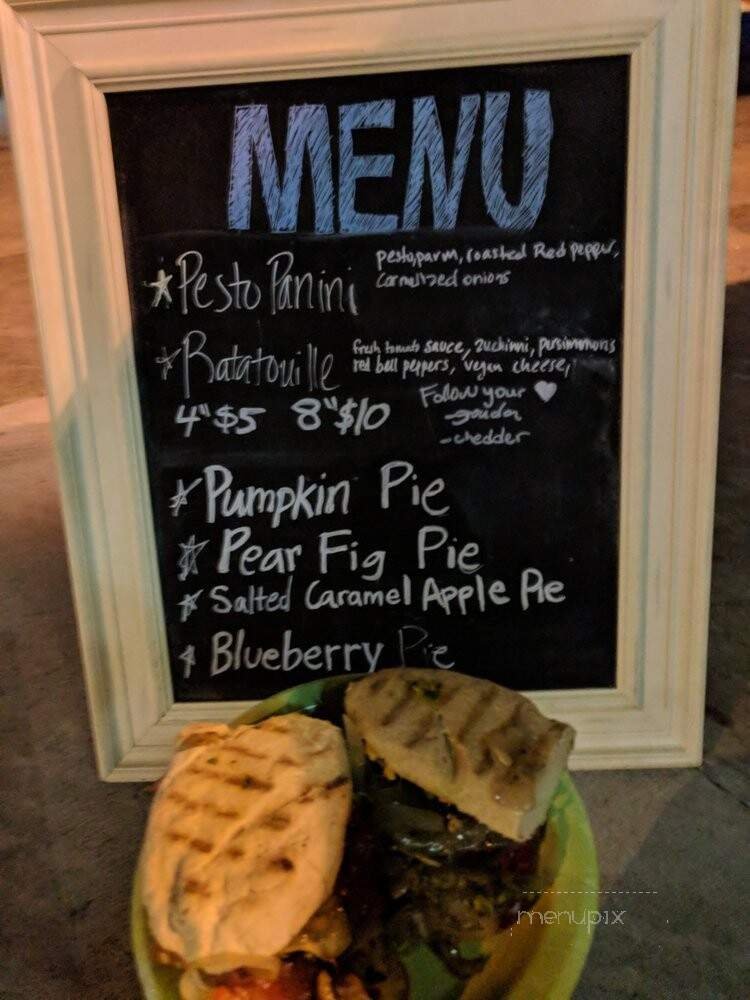 MENU
Pesto Panini
pesto, parm, roasted Red pepper,
Carmelized onions
Ratatouille
fresh tomato sauce, zuchinni, pursimmons
red bell peppers, vegan cheese,
4" $5 8" $10
Follow your ♥
-gouda
-chedder
Pumpkin Pie
Pear Fig Pie
Salted Caramel Apple Pie
Blueberry Pie
menupix